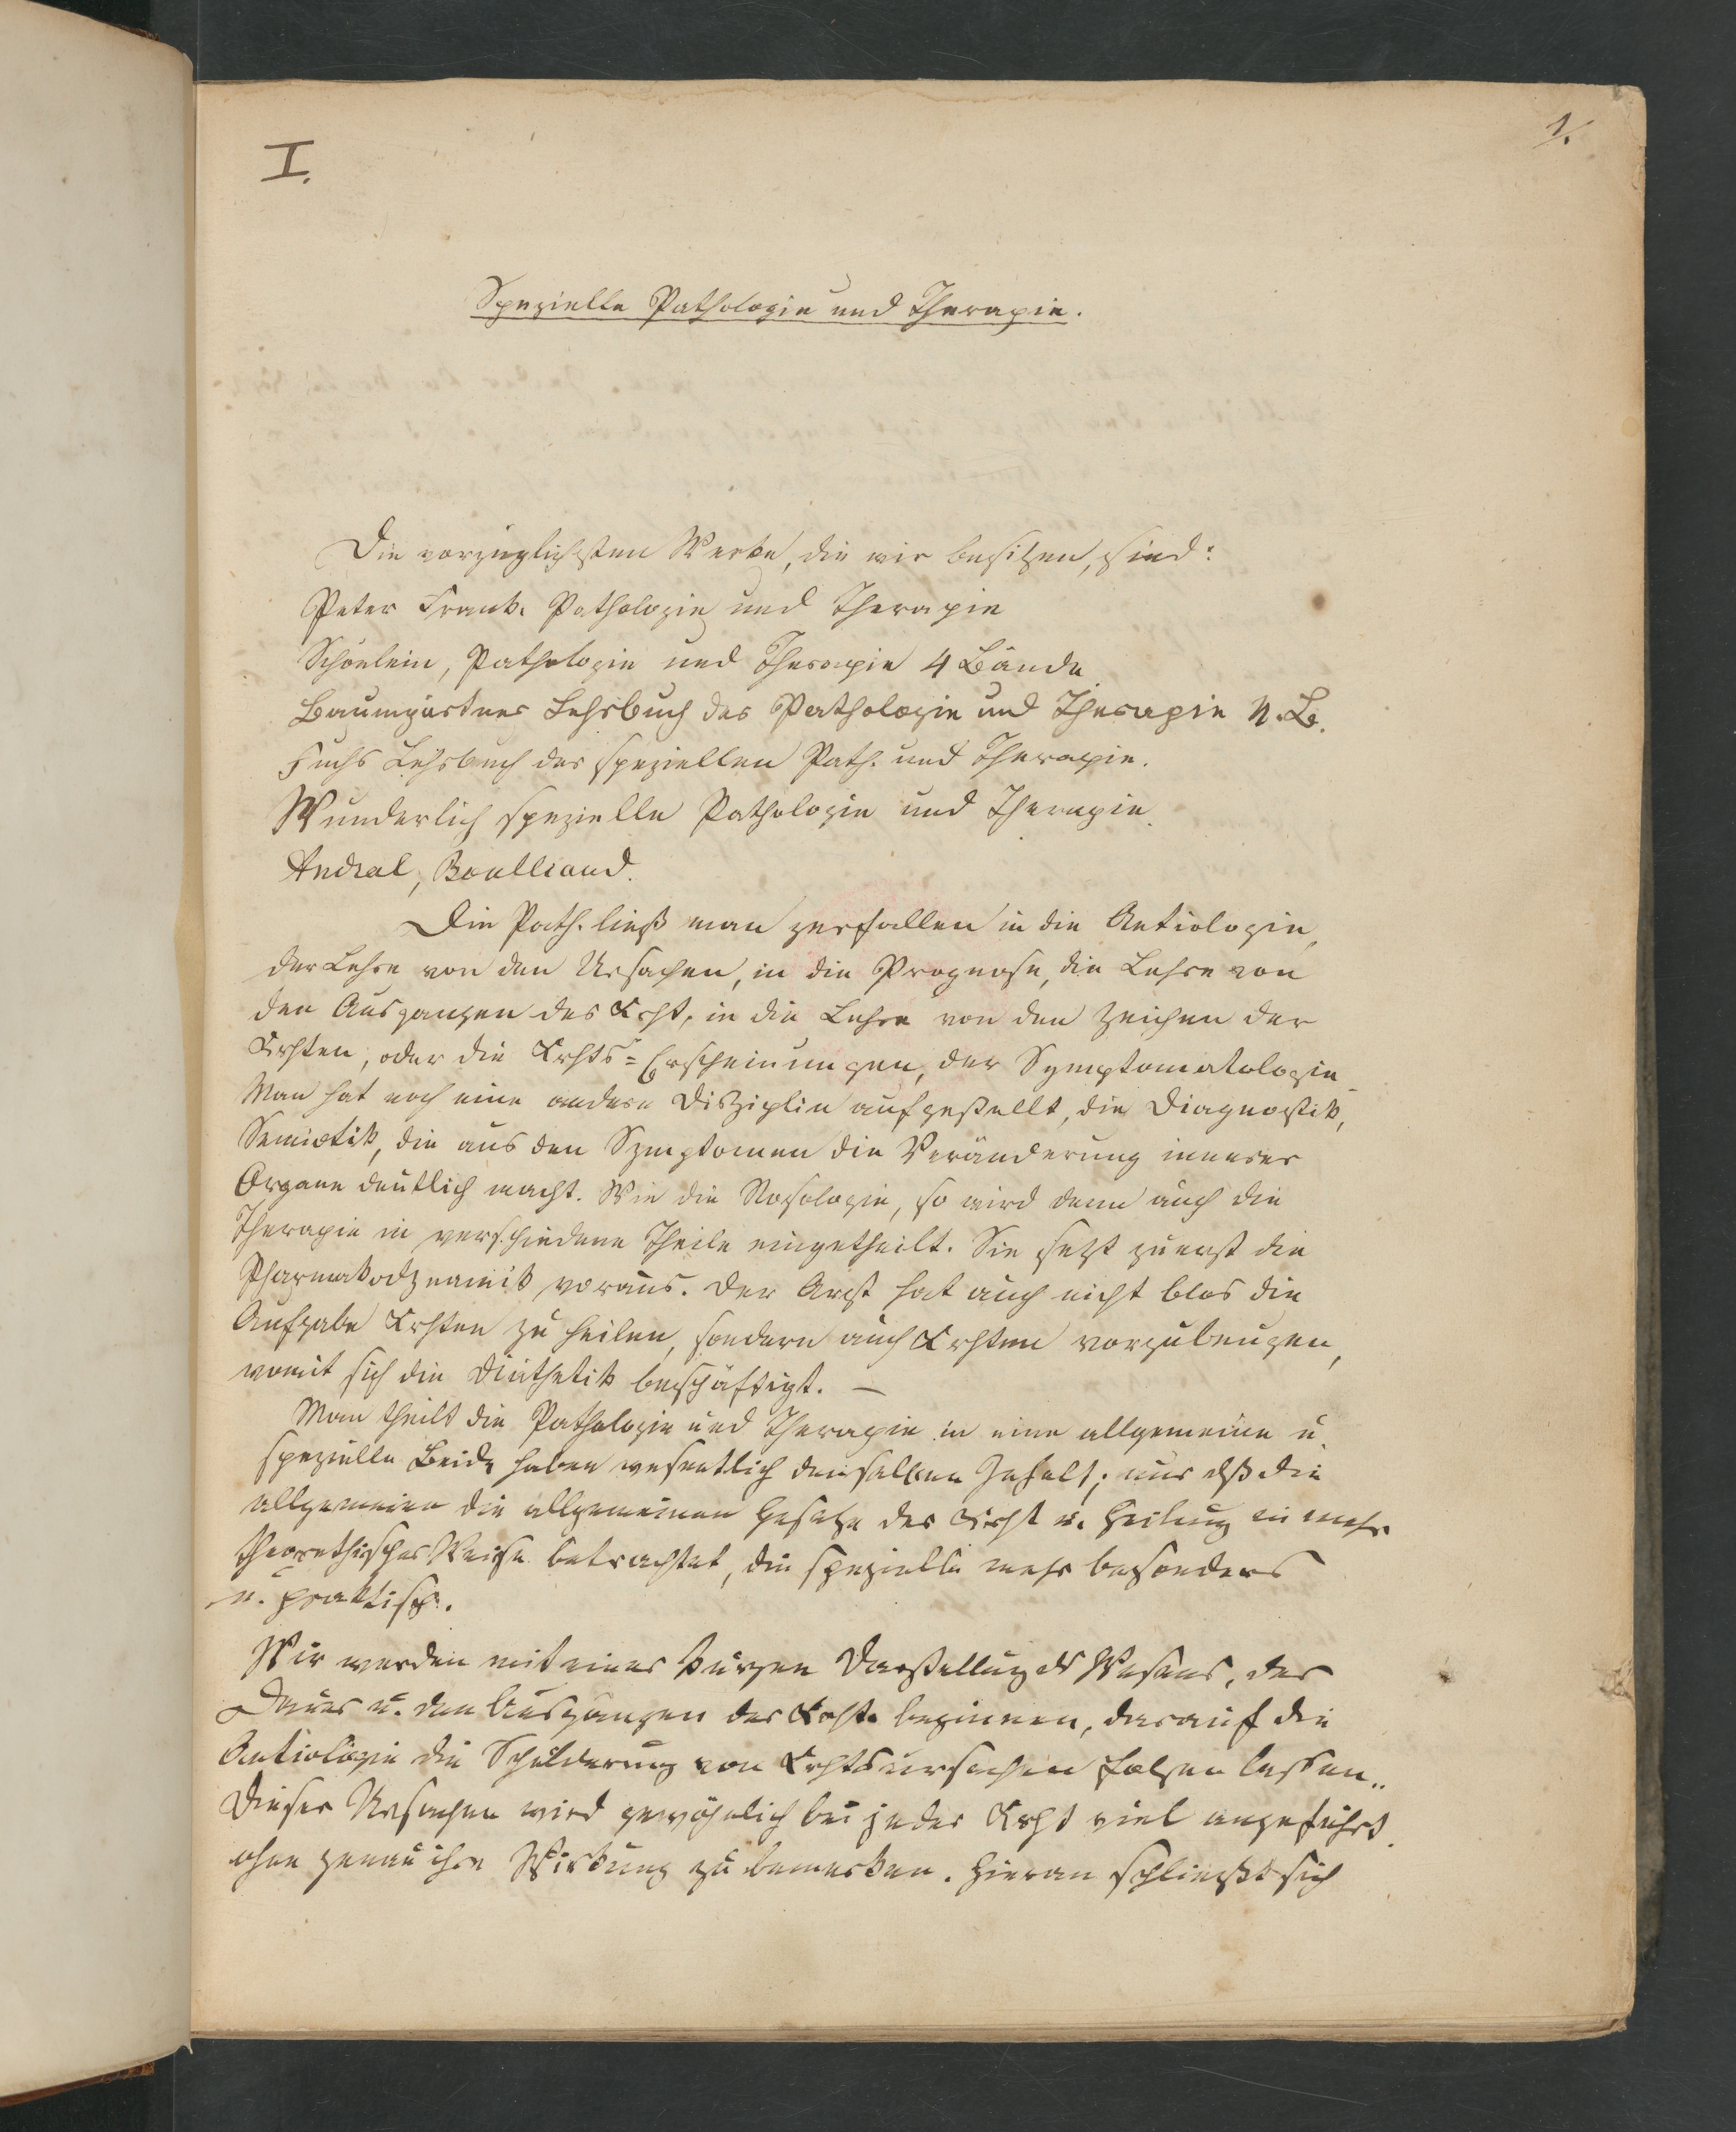 1.
I.
Spezielle Pathologie und Therapie.
Die vorzüglichsten Werke, die wir besitzen, sind:
Peter Frank. Pathologie und Therapie
Schönlein, Pathologie und Therapie 4 Bände
Baumgärtner Lehrbuch der Pathologie und Therapie
Fuchs Lehrbuch der speziellen Path. und Therapie.
Wunderlich spezielle Pathologie und Therapie.
Andral, Bouillaud.
Die Path. ließ man zerfallen in die Aetiologie,
der Lehre von den Ursachen, in die Prognose, die Lehre von
den Ausgangen der Krht, in die Lehre von den Zeichen der
Krhten, oder die Krhts=Erscheinungen, der Symptomatologie
Man hat noch eine andere Disziplin aufgestellt, die Diagnostik,
Semiotik, die aus den Symptomen die Veränderung innerer
Organe deutlich macht. Wie die Nosologie, so wird denn auch die
Therapie in verschiedene Theile eingetheilt. Sie setzt zuerst die
Pharmakodynamik voraus. Der Arzt hat auch nicht blos die
Aufgabe Krhten zu heilen, sondern auch Krhten vorzubeugen,
womit sich die Diäthetik beschäftigt. —
Man theilt die Pathologie und Therapie in eine allgemeine u.
spezielle Beide haben wesentlich denselben Inhalt; nur dß die
allgemeine die allgemeinen Gesetze der Krht u. Heilung in mehr
theorethischer Weise betrachtet, die spezielle mehr besonders
u. praktisch.
Wir werden mit einer kurzen Darstellung ds Wesens, der
Dauer u. den Ausgangen der Krht. beginnen, darauf die
Aetiologie die Schilderung von Krhtsursachen folgen lassen..
Dieser Ursachen wird gewöhnlich bei jeder Krht viel angeführt
ohne genau ihre Wirkung zu bemerken. Hieran schließt sich